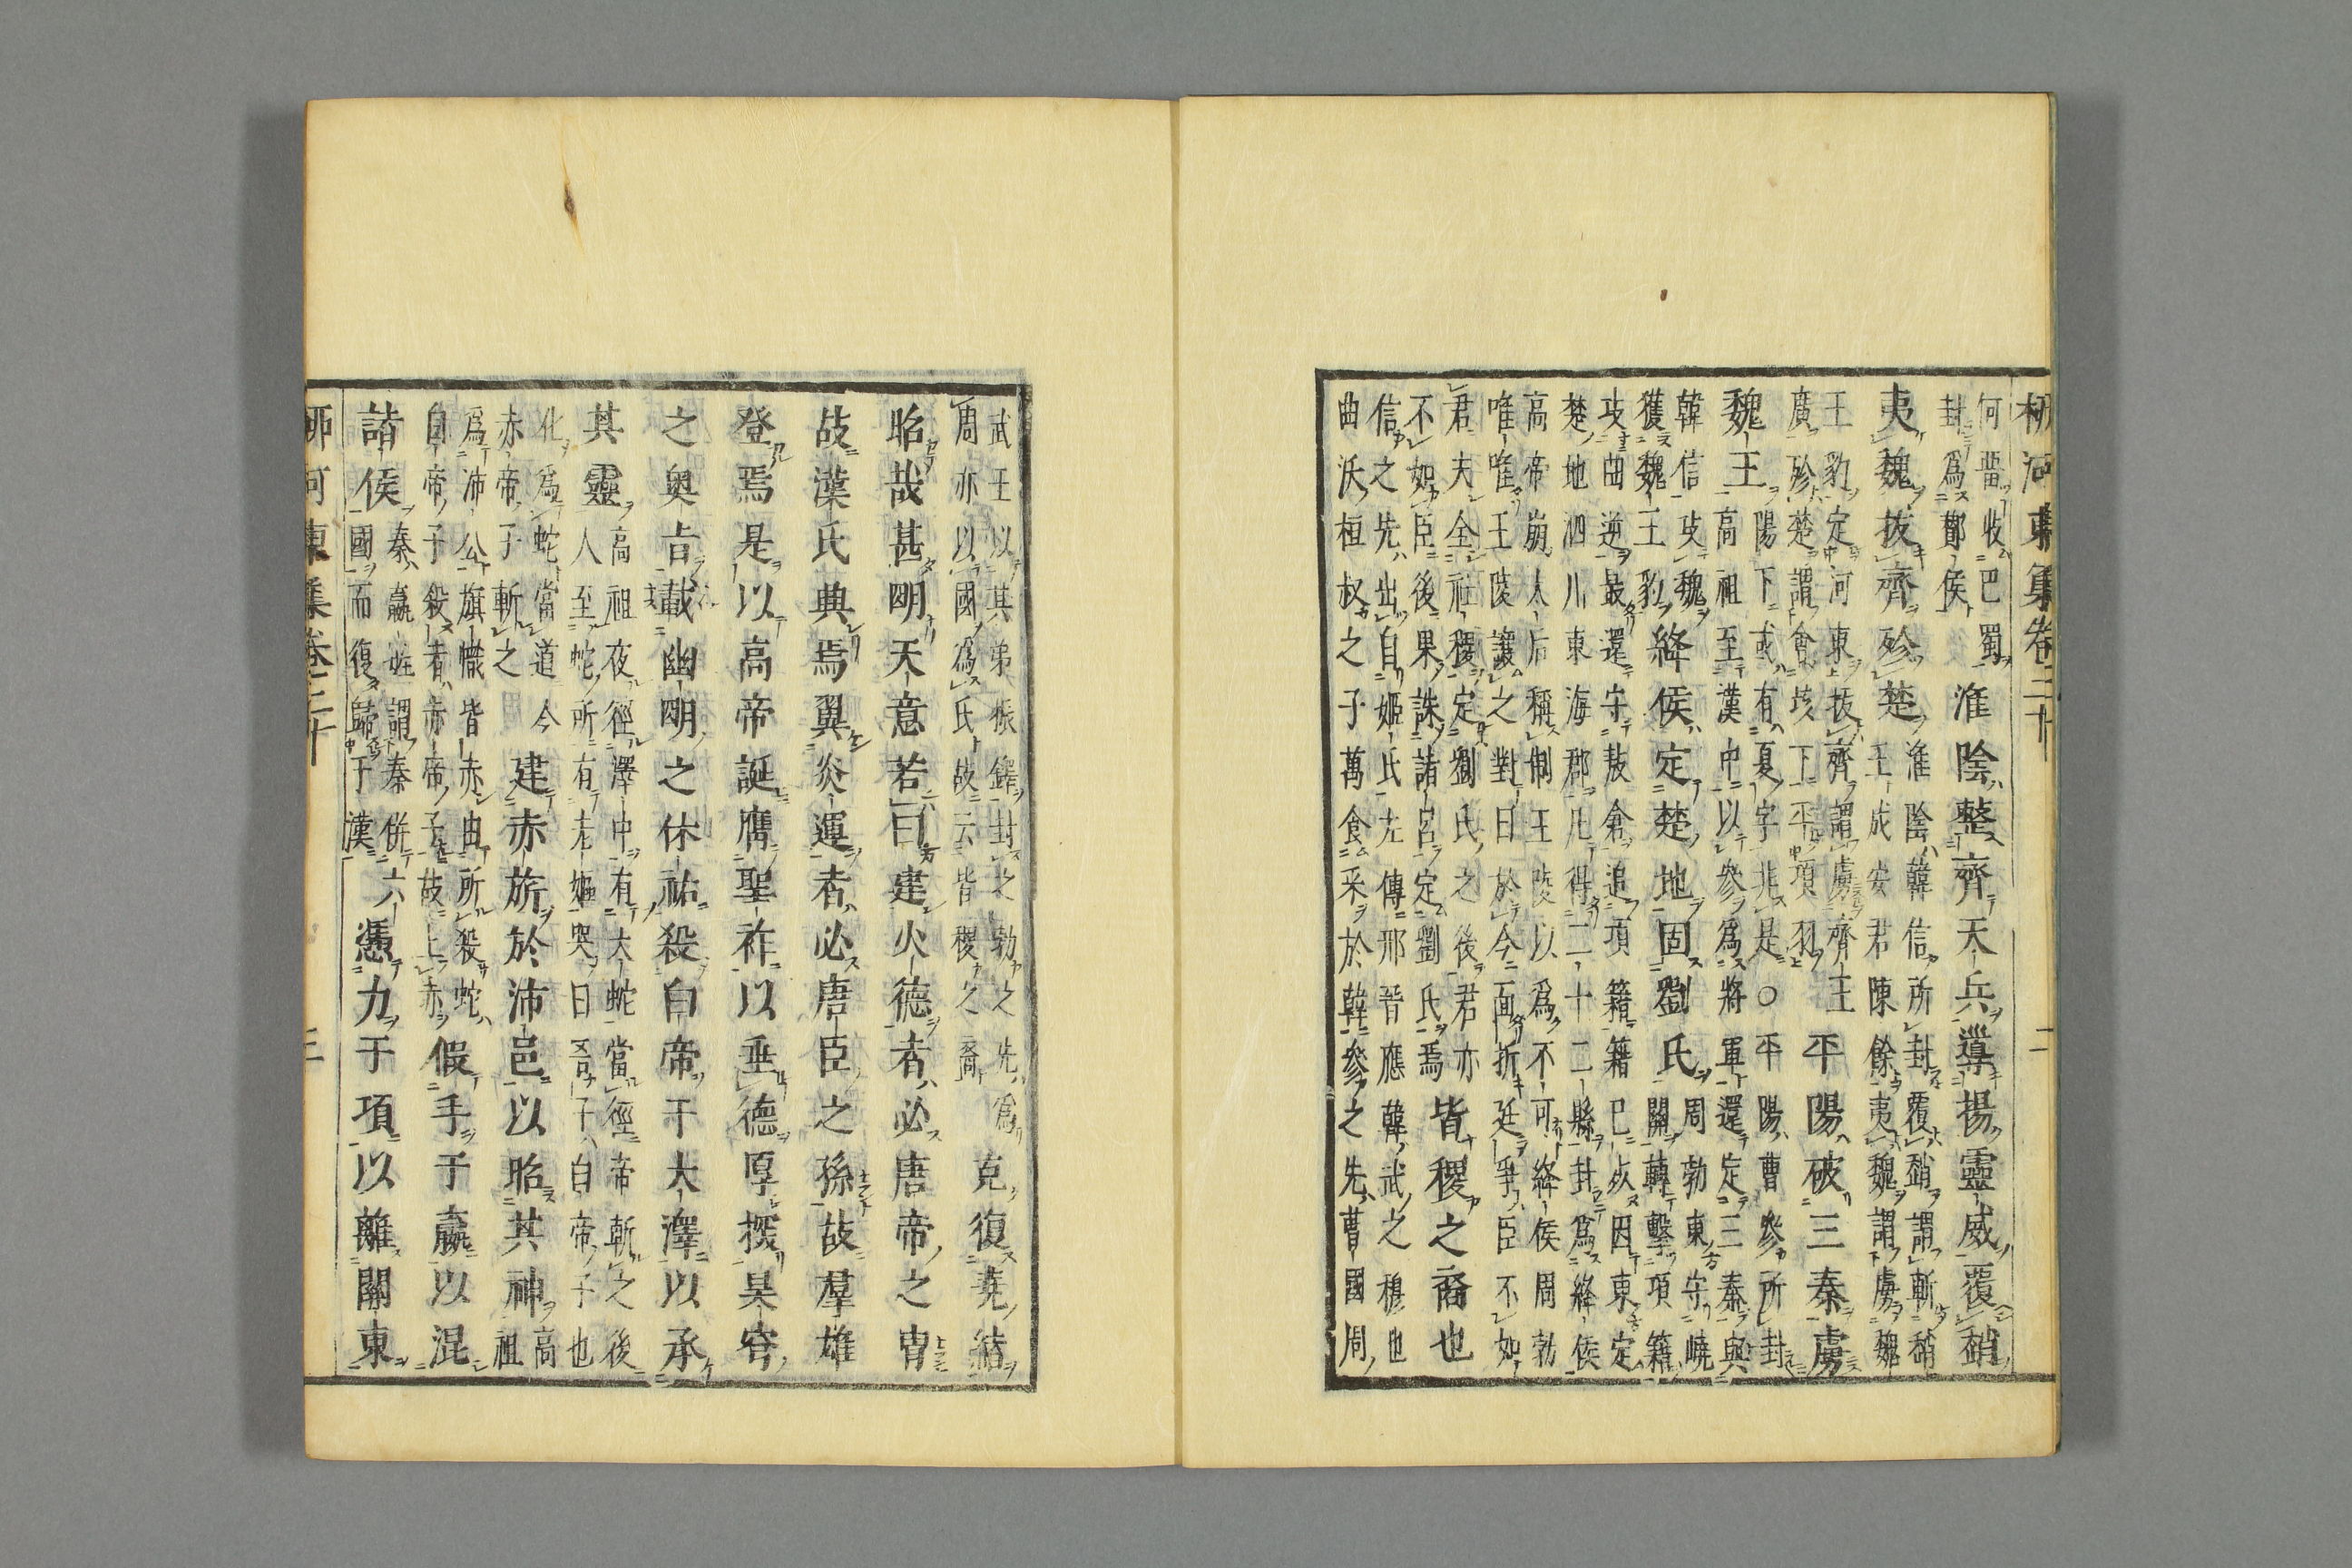 柳河東集卷二十 二
何畱收巴蜀
封爲酇侯
淮陰整齊天兵導揚靈威覆硝
夷魏拔齊殄楚
淮陰韓信所封覆硝謂斬硝
王成安君陳餘夷魏謂虜魏
王豹定河東拔齊謂虜齊王
廣殄楚謂會垓下平項羽
平陽破三秦虜
魏王
陽下或有夏字非是〇平陽曹參所封
高祖至漢中以參爲將軍還定三秦與
韓信攻魏
獲魏王豹
絳侯定楚地固劉氏
周勃東守嶢
關轉擊項籍
攻曲逆最還守敖倉追項籍籍已死因東定
楚地泗川東海郡凡得二十二縣封爲絳侯
高帝崩人后稱制王陵以爲不可絳侯周勃
唯唯王陵讓之對曰於今面折廷爭臣不如
君夫全社稷定劉氏之後君亦
不如臣後果誅諸呂定劉氏焉
皆稷之裔也
信之先出自姬氏左傳邢晉應韓武之穆也
曲沃桓叔之子萬食采於韓參之先曹國周
武王以其弟振鐸封之勃之先爲
周亦以國爲氏故云皆稷之裔
克復堯緒
昭哉甚明天意若曰建火德者必唐帝之冑
故漢氏典焉翼炎運者必唐臣之孫故羣雄
登焉是以高帝誕膺聖祚以垂德厚探昊穹
之奧旨載幽明之休祐殺白帝于大澤以承
其靈
高祖夜徑澤中有大蛇當徑帝斬之後
人至蛇所有老嫗哭曰吾子白帝子也
化爲蛇當道今
赤帝子斬之
建赤旂於沛邑以昭其神
高
祖
爲沛公旗幟皆赤由所殺蛇
白帝子殺者赤帝子故上赤
假手于嬴以混
諸侯
秦嬴姓謂秦併六
國而復歸于漢
憑力于項以離關東
柳河東集卷二十 三